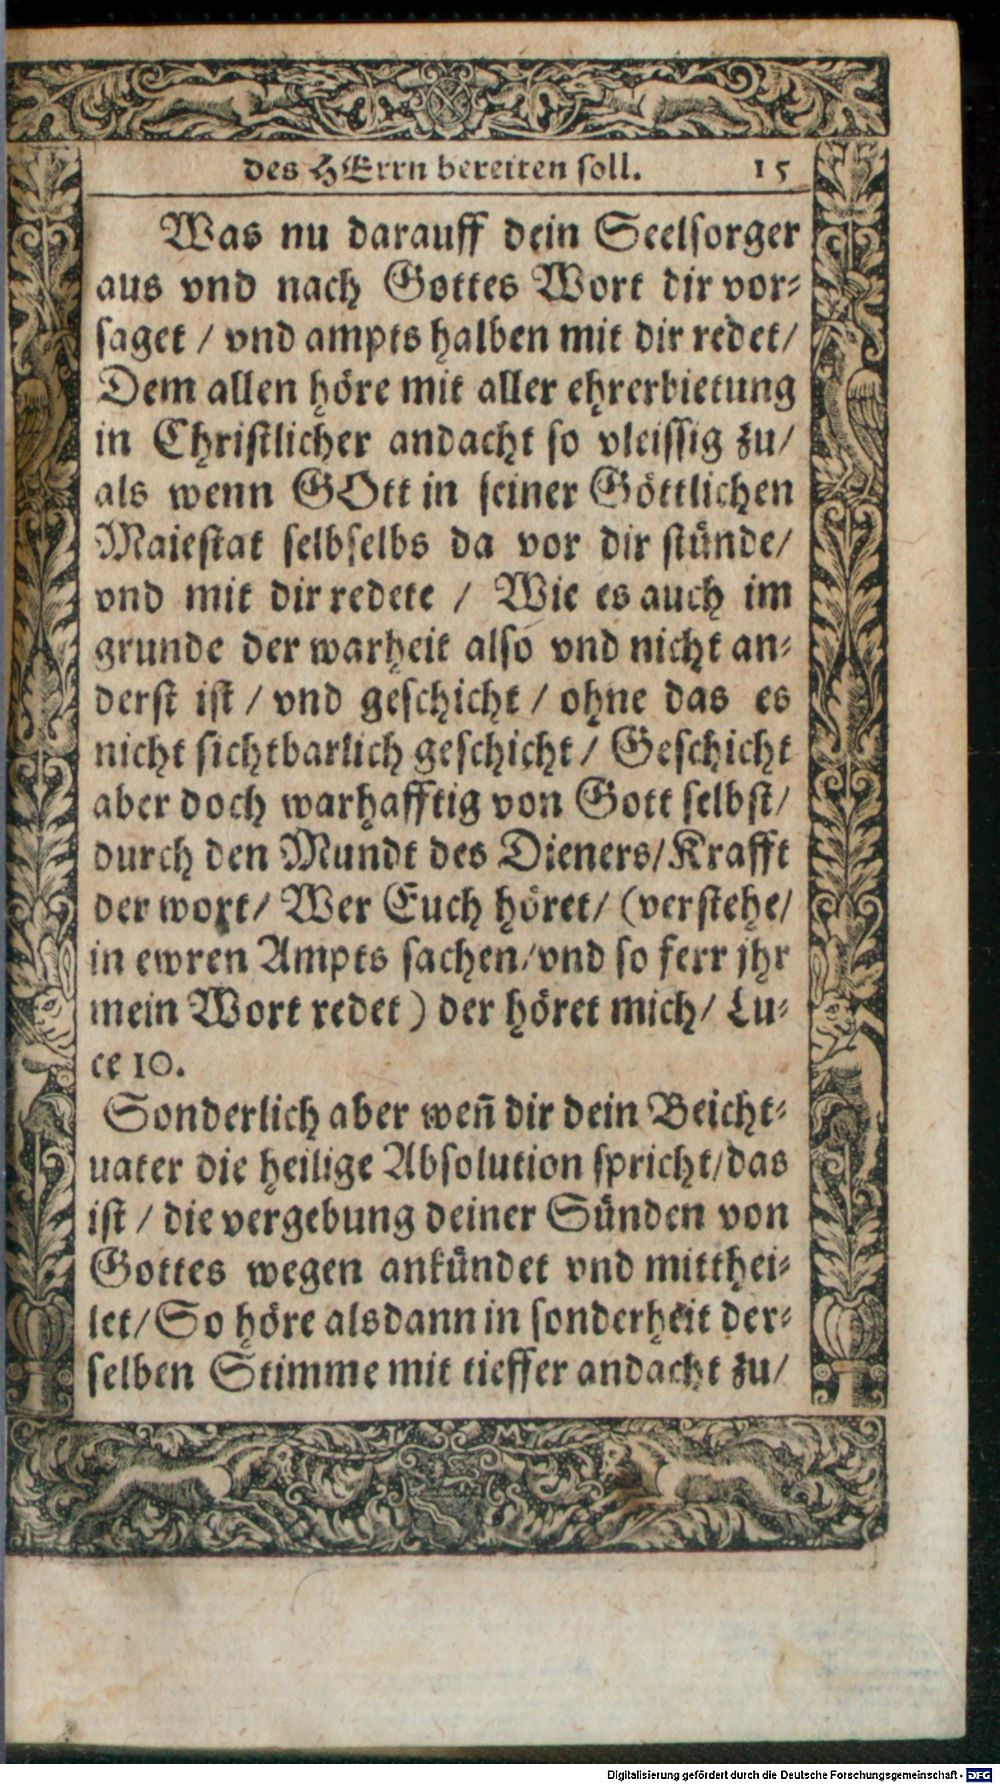 des HErrn bereiten soll. 15
Was nu darauff dein Seelsorger
aus vnd nach Gottes Wort dir vor-
saget / vnd ampts halben mit dir redet/
Dem allen höre mit aller ehrerbietung
in Christlicher andacht so vleissig zu/
als wenn GOtt in seiner Göttlichen
Maiestat selbselbs da vor dir stünde/
vnd mit dir redete / Wie es auch im
grunde der warheit also vnd nicht an-
derst ist / vnd geschicht / ohne das es
nicht sichtbarlich geschicht / Geschicht
aber doch warhafftig von Gott selbst/
durch den Mundt des Dieners/Krafft
der wort/ Wer Euch höret/ (verstehe/
in ewren Ampts sachen/vnd so ferr jhr
mein Wort redet) der höret mich/ Lu-
ce 10.
Sonderlich aber weñ dir dein Beicht-
uater die heilige Absolution spricht/das
ist / die vergebung deiner Sünden von
Gottes wegen ankündet vnd mitthei-
let/So höre alsdann in sonderheit der-
selben Stimme mit tieffer andacht zu/
Digitalisierung gefördert durch die Deutsche Forschungsgemeinschaft - DFG